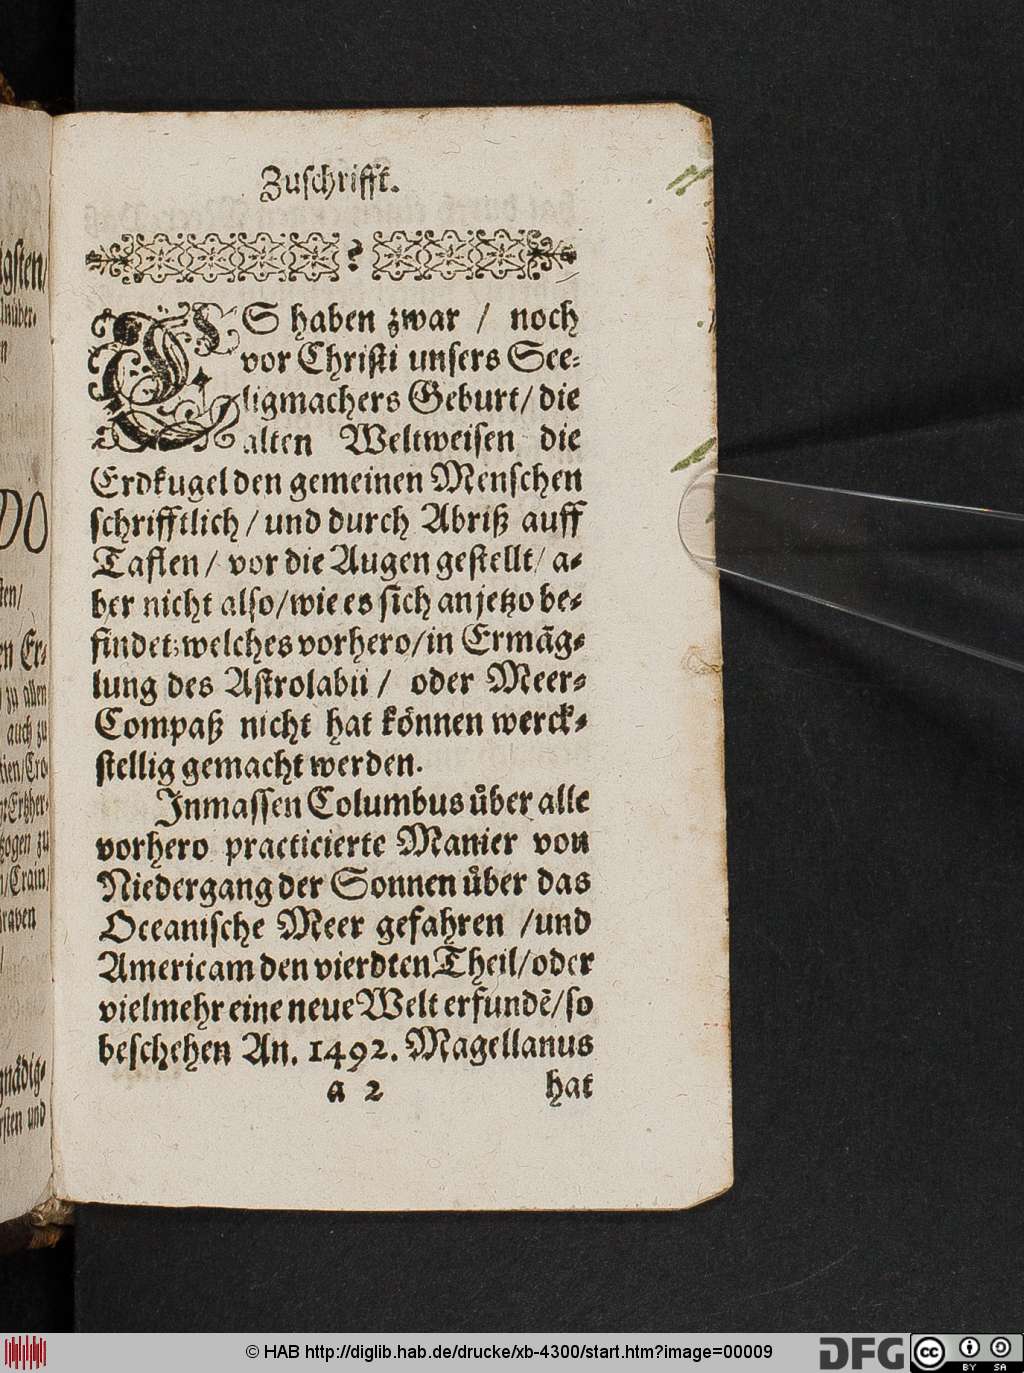 Zuschrifft.
ES haben zwar / noch
vor Christi unsers See-
ligmachers Geburt / die
alten Weltweisen die
Erdkugel den gemeinen Menschen
schrifftlich / und durch Abriß auff
Taflen / vor die Augen gestellt / a-
ber nicht also / wie es sich anjetzo be-
findet; welches vorhero / in Ermäg-
lung des Astrolabii / oder Meer-
Compaß nicht hat können werck-
stellig gemacht werden.
Inmassen Columbus über alle
vorhero practicierte Manier von
Niedergang der Sonnen über das
Oceanische Meer gefahren / und
Americam den vierdten Theil / oder
vielmehr eine neue Welt erfundē / so
beschehen An. 1492. Magellanus
a 2 hat
gsten /
DO
ten /
en Er-
zu allen
auch zu
zogen zu
/ Crain /
graven
gnädig-
rsten und
© HAB http://diglib.hab.de/drucke/xb-4300/start.htm?image=00009
DFG
cc
BY SA